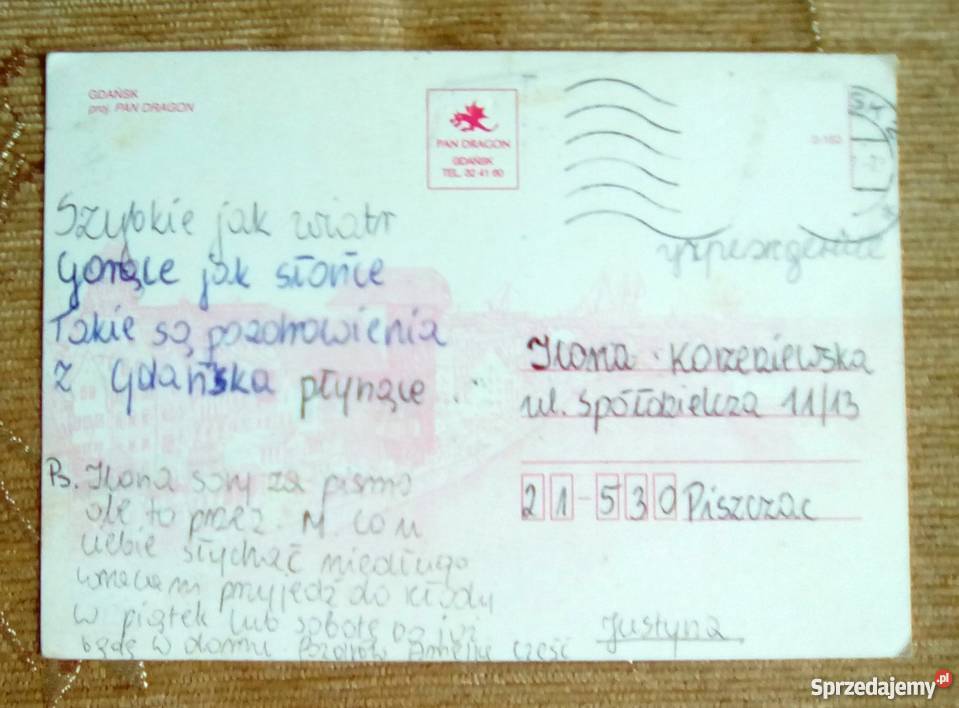 GDAŃSK
proj. PAN DRAGON
PAN DRAGON
GDAŃSK
TEL. 32 41 60
Szybkie jak wiatr
Gorące jak słońce
Takie są pozdrowienia
Z Gdańska płynące.
Ilona Korzeniewska
ul. Spółdzielcza 11/13
21-530 Piszczac
Ps. Ilona sory za pismo
ale to przez M. co u
ciebie słychać niedługo
wracam przyjedź do Kłody
w piątek lub sobotę bo już
będę w domu. Pozdrów cześć
Justyna
Sprzedajemy.pl